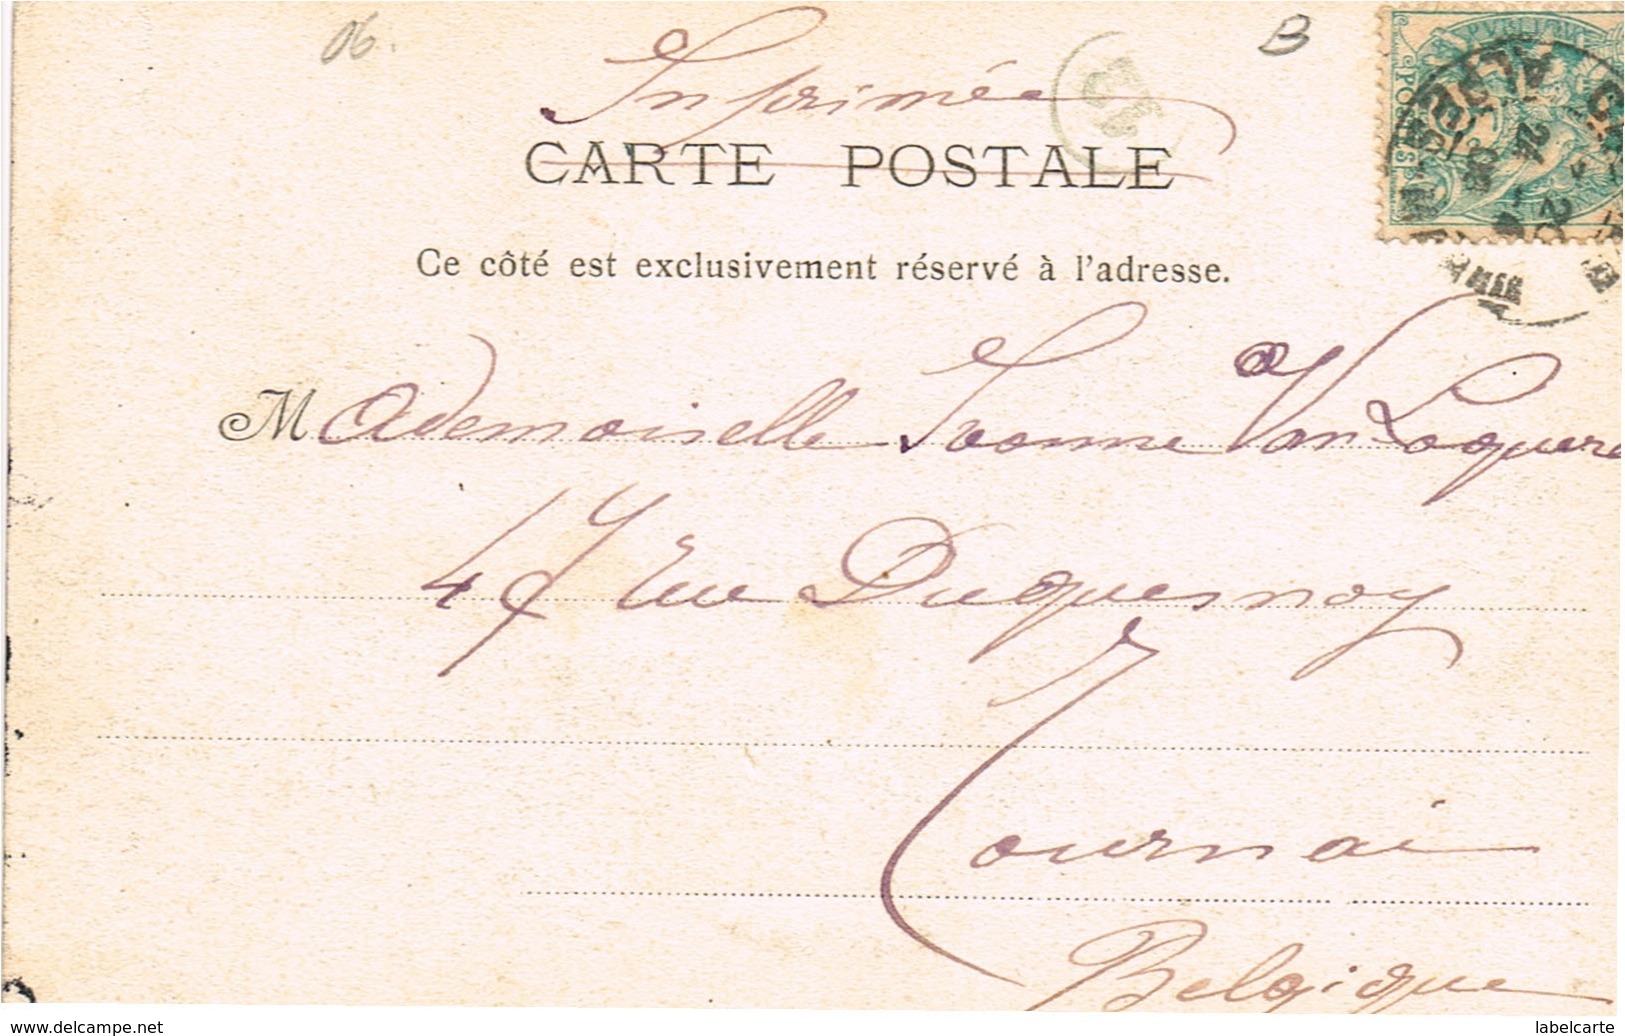 06.
B
Imprimée
CARTE POSTALE
Ce côté est exclusivement réservé à l'adresse.
Mademoiselle Yvonne Van
47 rue Duquesnoy
Tournai
Belgique
www.delcampe.net
labelcarte